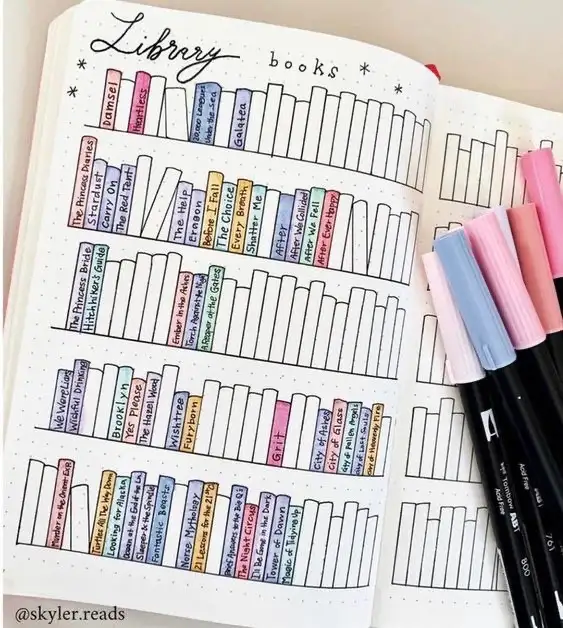 Library books
Damsel
Heartless
20,000 Leagues Under the Sea
Galatea
The Princess Diaries
Stardust
Carry On
The Red Tent
The Help
Eragon
Before I Fall
The Choice
Every Breath
Shatter Me
After
After We Collided
After We Fell
After Ever Happy
The Princess Bride
Hitchhiker's Guide
Ember in the Ashes
Torch Against the Night
A Reaper at the Gates
We Were Liars
Wishful Drinking
Brooklyn
Yes Please
The Hazel Wood
Wishtree
Furyborn
Grit
City of Ashes
City of Glass
City of Fallen Angels
City of Lost Souls
City of Heavenly Fire
Murder on the Orient Exp.
Turtles All the Way Down
Looking for Alaska
Queen at the End of the
Sleeper & the Spindle
Fantastic Beasts
Norse Mythology
21 Lessons for the 21st C
Brief Answers to the Big Q's
The Night Circus
I'll Be Gone in the Dark
Tower of Dawn
Magic of Tidying Up
Acid Free
Tombow ABT
800
Acid Free
761
@skyler.reads